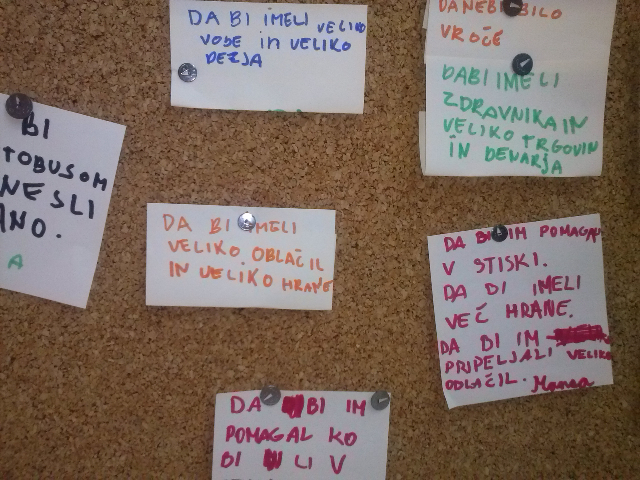 DA BI IMELI VELIKO
VODE in VELIKO
DEZJA
DA NEBI BILO
VROČE
DA BI IMELI
ZDRAVNIKA IN
VELIKO TRGOVIN
IN DENARJA
BI
TOBUSOM
NESLI
NO.
A
DA BI IMELI
VELIKO OBLAČIL
IN VELIKO HRANE
DA BI IM POMAGALI
V STISKI.
DA BI IMELI
VEČ HRANE.
DA BI IM
PRIPELJALI VELIKO
OBLAČIL.
DA BI IM
POMAGAL KO
BI LI V